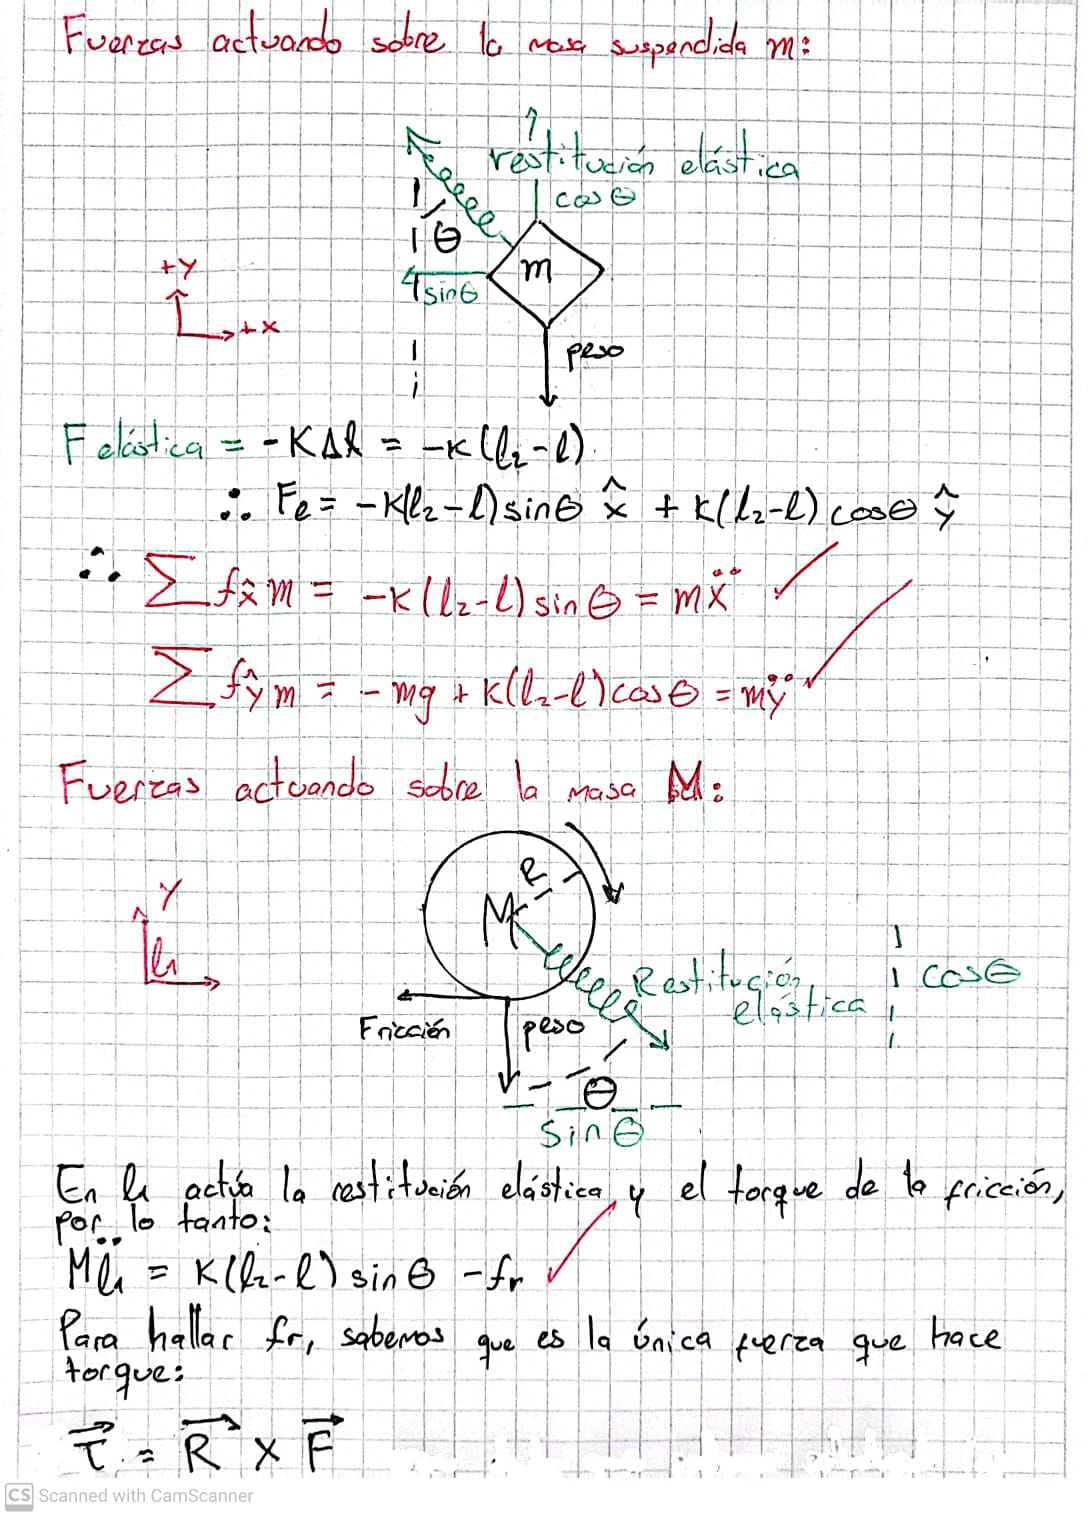 Fuerzas actuando sobre la masa suspendida m:
restitución elástica
cos θ
θ
m
sin θ
+y
+x
peso
F elástica = -KΔl = -K(l₂-l)
∴ Fe = -K(l₂-l) sinθ x̂ + K(l₂-l) cosθ ŷ
∴ ∑ fx̂ m = -K(l₂-l) sinθ = mẍ
∑ fŷ m = -mg + K(l₂-l) cosθ = mÿ
Fuerzas actuando sobre la masa M:
R
M
y
l₁
Restitución
elástica
cosθ
Fricción
peso
θ
sinθ
En l₁ actúa la restitución elástica y el torque de la fricción,
por lo tanto:
Ml̈₁ = K(l₂-l) sinθ - fr
Para hallar fr, sabemos que es la única fuerza que hace
torque:
τ⃗ = R⃗ x F⃗
CS Scanned with CamScanner